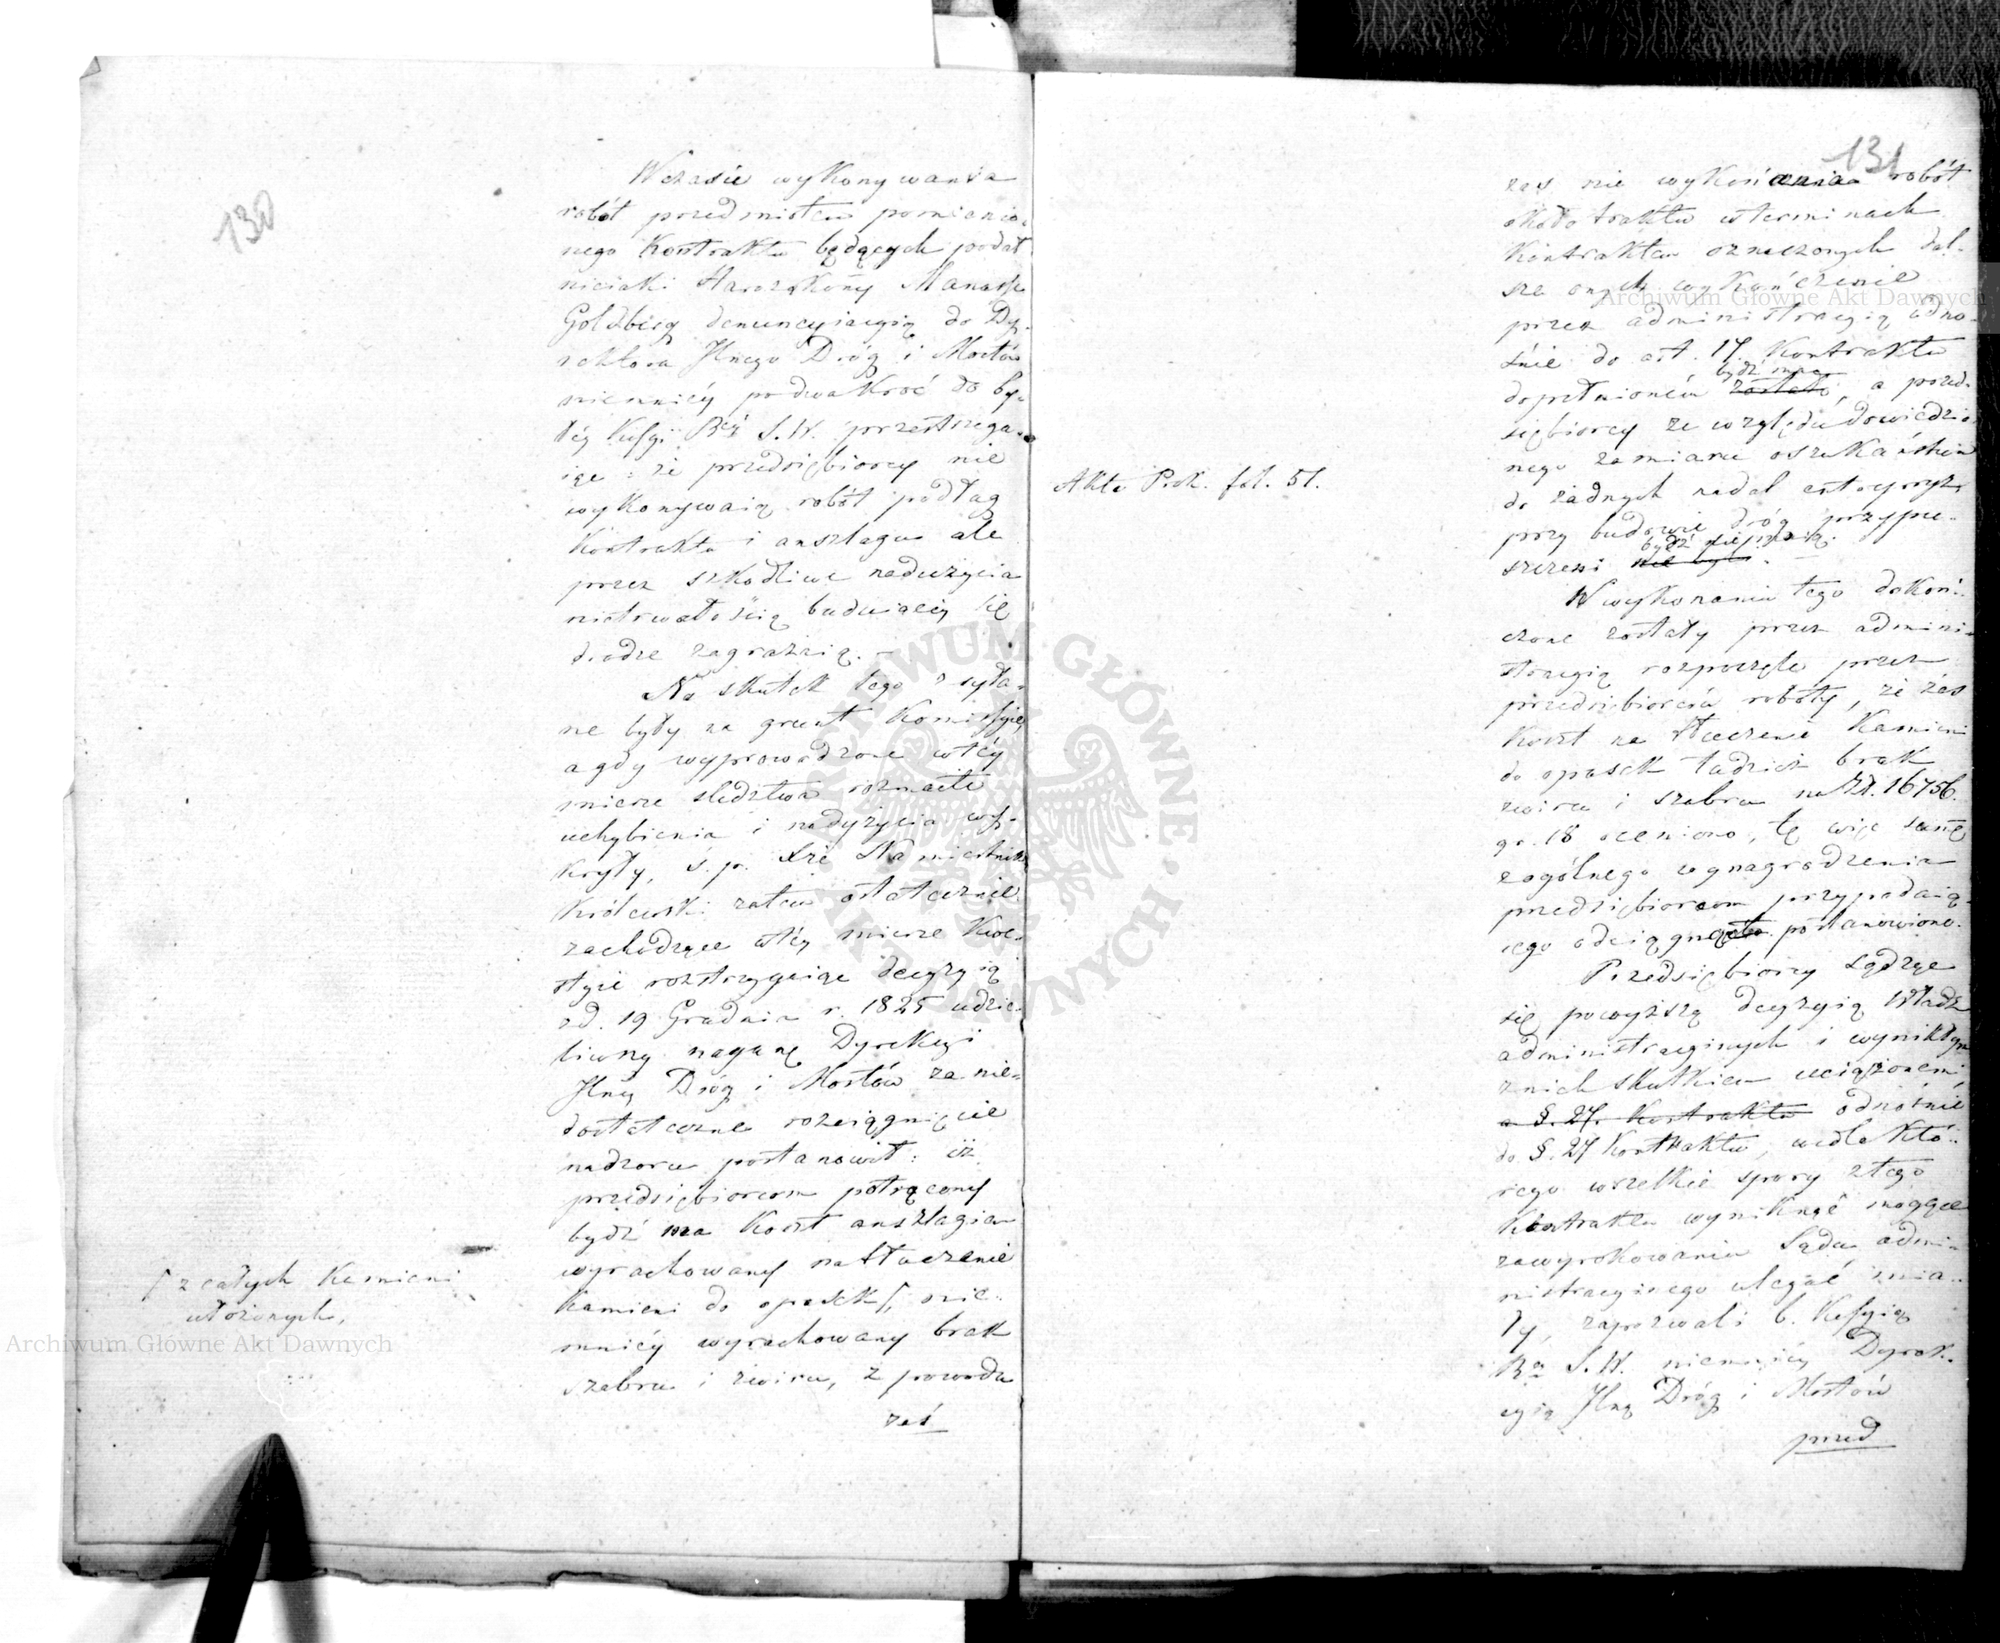 130
W czasie wykonywania
robót przedmiotem pomienio-
nego Kontraktu będących podał
niejaki Starozakonny Manasse
Goldberg denuncyiacyią do Dy-
rektora Jlnego Dróg i Mostów
niemniéy podwakroć do by-
łéy Kssyi Rej S. W. przestrzega-
iąc: że przedsiębiorcy nie
wykonywaią robót podług
Kontraktu i anszlagu ale
przez szkodliwe nadużycia
nietrwałością buduiącéy się
drodze zagrażaią. –
Na skutek tego zsyła-
ne były na grunt Kommissye,
a gdy wyprowadzone w téy
mierze śledztwa rozmaite
uchybienia i nadużycia wy-
kryły, ś. p. Xże Namiestnik
Królewski zatem ostatecznie
zachodzące w téy mierze kwe-
stye rozstrzygaiąc decyzyią
z d. 19 Grudnia r. 1825 udzie-
liwszy naganę Dyrekcyi
Jlnéy Dróg i Mostów za nie-
dostateczne rozciągnięcie
nadzoru postanowił: iż
przedsiębiorcom potrącony
bydź ma koszt anszlagiem
wyrachowany na tłuczenie
kamieni do opasek ſ, nie-
mniéy wyrachowany brak
szabru i żwiru, z powodu
zaś
ſ z całych kamieni
ułożonych,
131
zaś nie wykonania robót
około traktu w terminach
Kontraktem oznaczonych dal-
sze onych wykończenie
przez administracyią odno-
śnie do art. 17. Kontraktu
bydź ma
dopełnioném zostało, a przed-
siębiorcy ze względu dowiedzio-
nego zamiaru oszukaństwa
do żadnych nadal entrepryz
przy budowie dróg przypu-
bydź nie maią.
szczeni nie byli.
Akta Prok. fol. 51.
W wykonaniu tego dokoń-
czone zostały przez admini-
stracyią rozpoczęte przez
przedsiębiorców roboty, że zaś
koszt na tłuczenie kamieni
do opasek tudzież brak
żwiru i szabru na Zł. 16756.
gr. 18 oceniono, tę więc summę
z ogólnego wynagrodzenia
przedsiębiorcom przypadaią-
cego odciągnąć postanowiono.
Przedsiębiorcy sądząc
się powyższą decyzyią Władz
administracyinych i wynikłym
z nich skutkiem uciążonemi
a §. 27. Kontraktu odnośnie
do §. 27 Kontraktu, wedle któ-
rego wszelkie spory z tego
Kontraktu wyniknąć mogące
zawyrokowaniu Sądu admi-
nistracyinego ulegać mia-
ły, zapozwali b. Kssyią
Rą S. W. niemniéy Dyrek-
cyią Jlną Dróg i Mostów
przed
Archiwum Główne Akt Dawnych
Archiwum Główne Akt Dawnych
ARCHIWUM GŁÓWNE AKT DAWNYCH